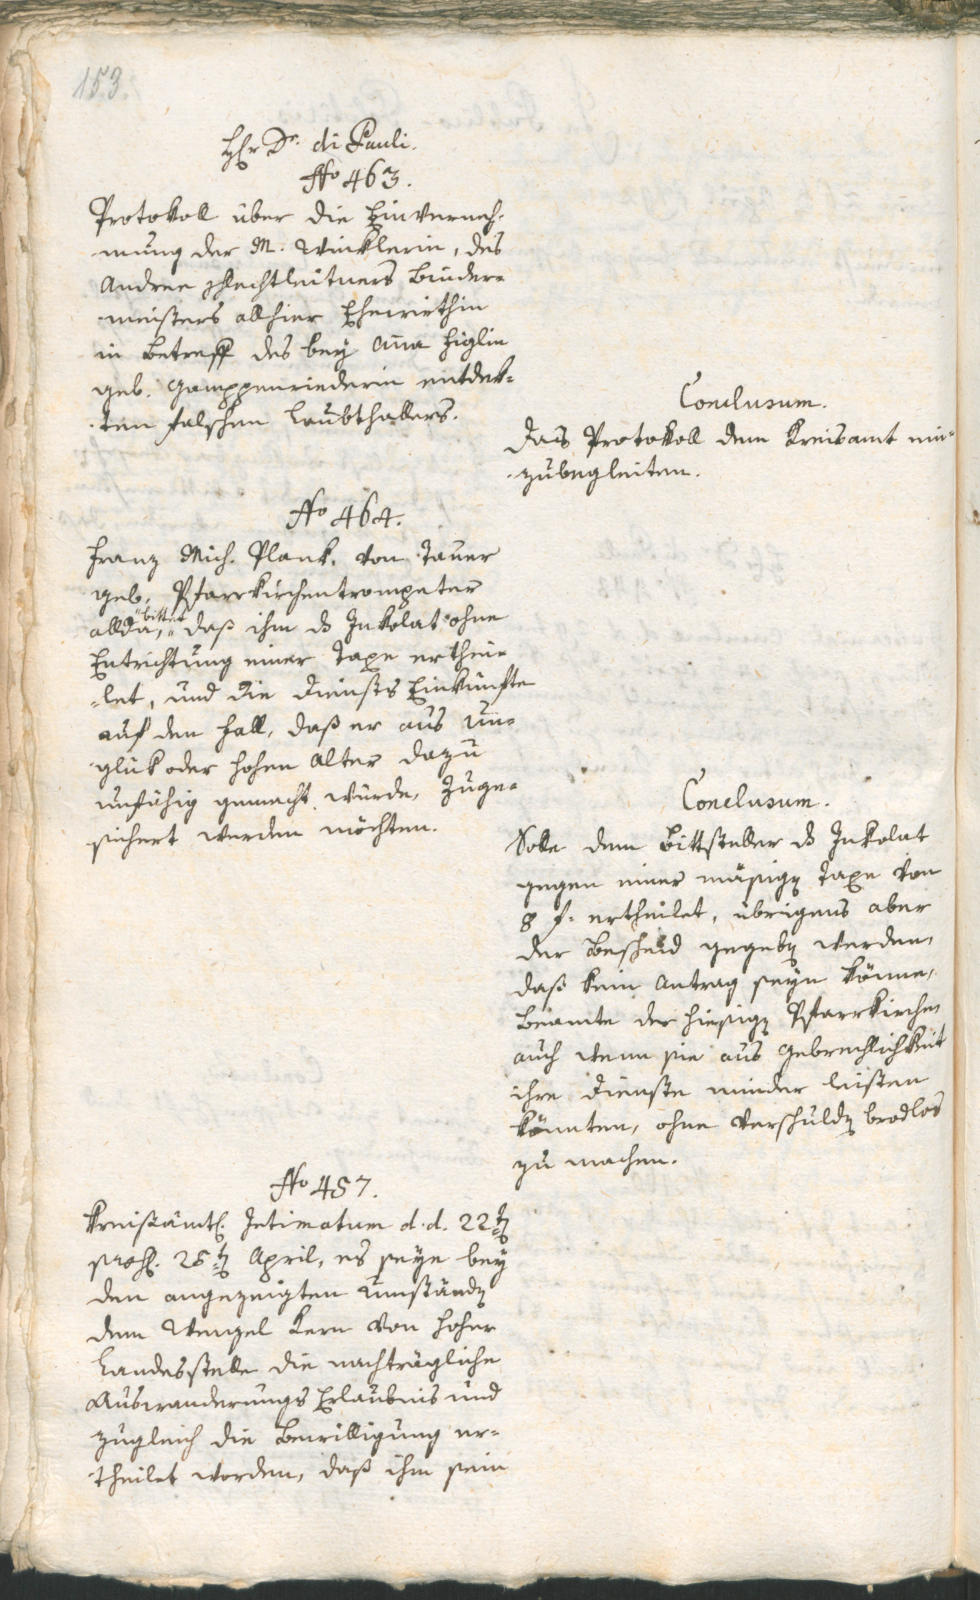 153.
Hr Dr. di Pauli.
No 463.
Protokoll über die Einverneh-
mung der M. Winklerin, des
Andree Schlechtleitners Binder-
meisters allhier Ehewirthin
in Betreff des bey Aña Figlin
geb. Gamppenriederin entdek-
ten falschen Laubthallers.
Conclusum.
Das Protokoll dem Kreisamt ein-
zubegleiten.
No 464.
Franz Mich. Plank, von
geb. Pfarrkirchentrompeter
allda, bittet daß ihm ds Inkolat ohne
Entrichtung einer Taxe erthei-
let, und die Diensts Einkünfte
auf den Fall, daß er aus Un-
glük oder hohen Alter dazu
unfähig gemacht würde, zuge-
sichert werden möchten.
Conclusum.
Solle dem Bittsteller ds Inkolat
gegen einer mäsig Taxe von
8 f. ertheilet, übrigens aber
der Bescheid gegeb werden,
daß kein Antrag seyn könne,
Beamte der hiesig Pfarrkirche
auch wenn sie aus Gebrechlichkeit
ihre Dienste minder leisten
könnten, ohne Verschuld brodlos
zu machen.
No 457.
Kreisämtl. Intimatum d. d. 22t
praes. 28t April, es seye bey
den angezeigten Umständ
dem Wenzel Kern von hoher
Landesstelle die nachträgliche
Auswanderungs Erlaubnis und
zugleich die Bewilligung er-
theilet worden, daß ihm sein